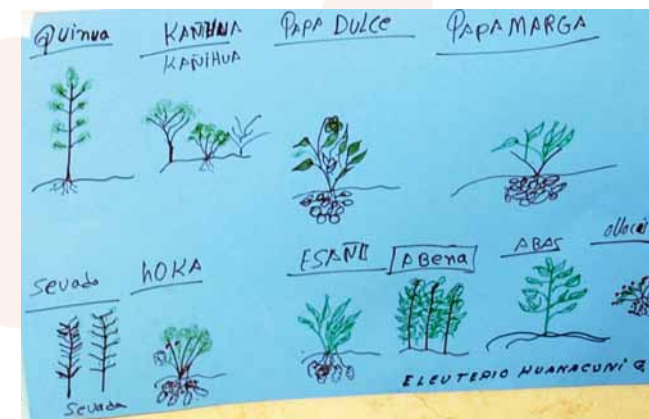 Quinua
KAÑIHUA
KAÑIHUA
PAPA DULCE
PAPA MARGA
Sevada
hOKA
ESAÑU
ABena
ABAS
Sevada
ELEUTERIO HUANACUNI Q